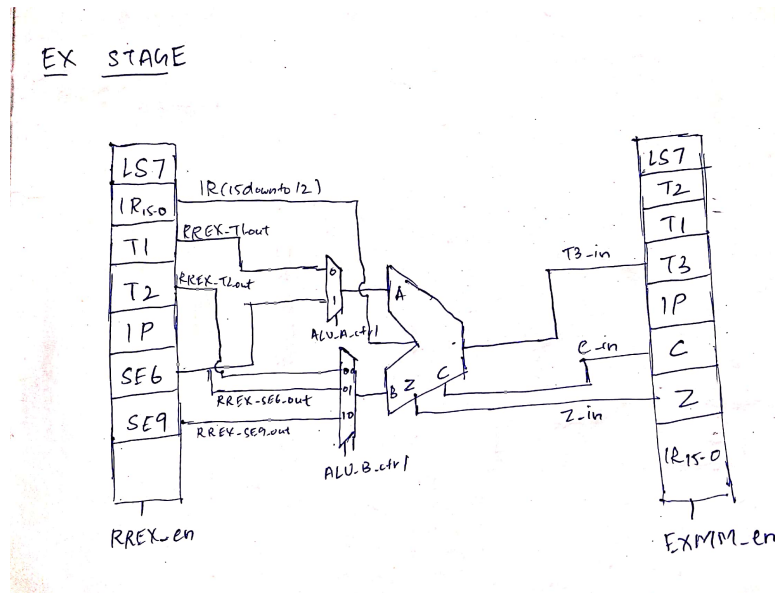 EX STAGE
LS7
IR15-0
T1
T2
IP
SE6
SE9
RREX_en
IR(15downto 12)
RREX-T1out
RREX-T2out
0
1
ALU_A_ctrl
00
01
10
RREX-SE6_out
RREX-SE9_out
ALU_B_ctrl
A
B
Z
C
T3_in
C_in
Z_in
LS7
T2
T1
T3
IP
C
Z
IR15-0
EXMM_en